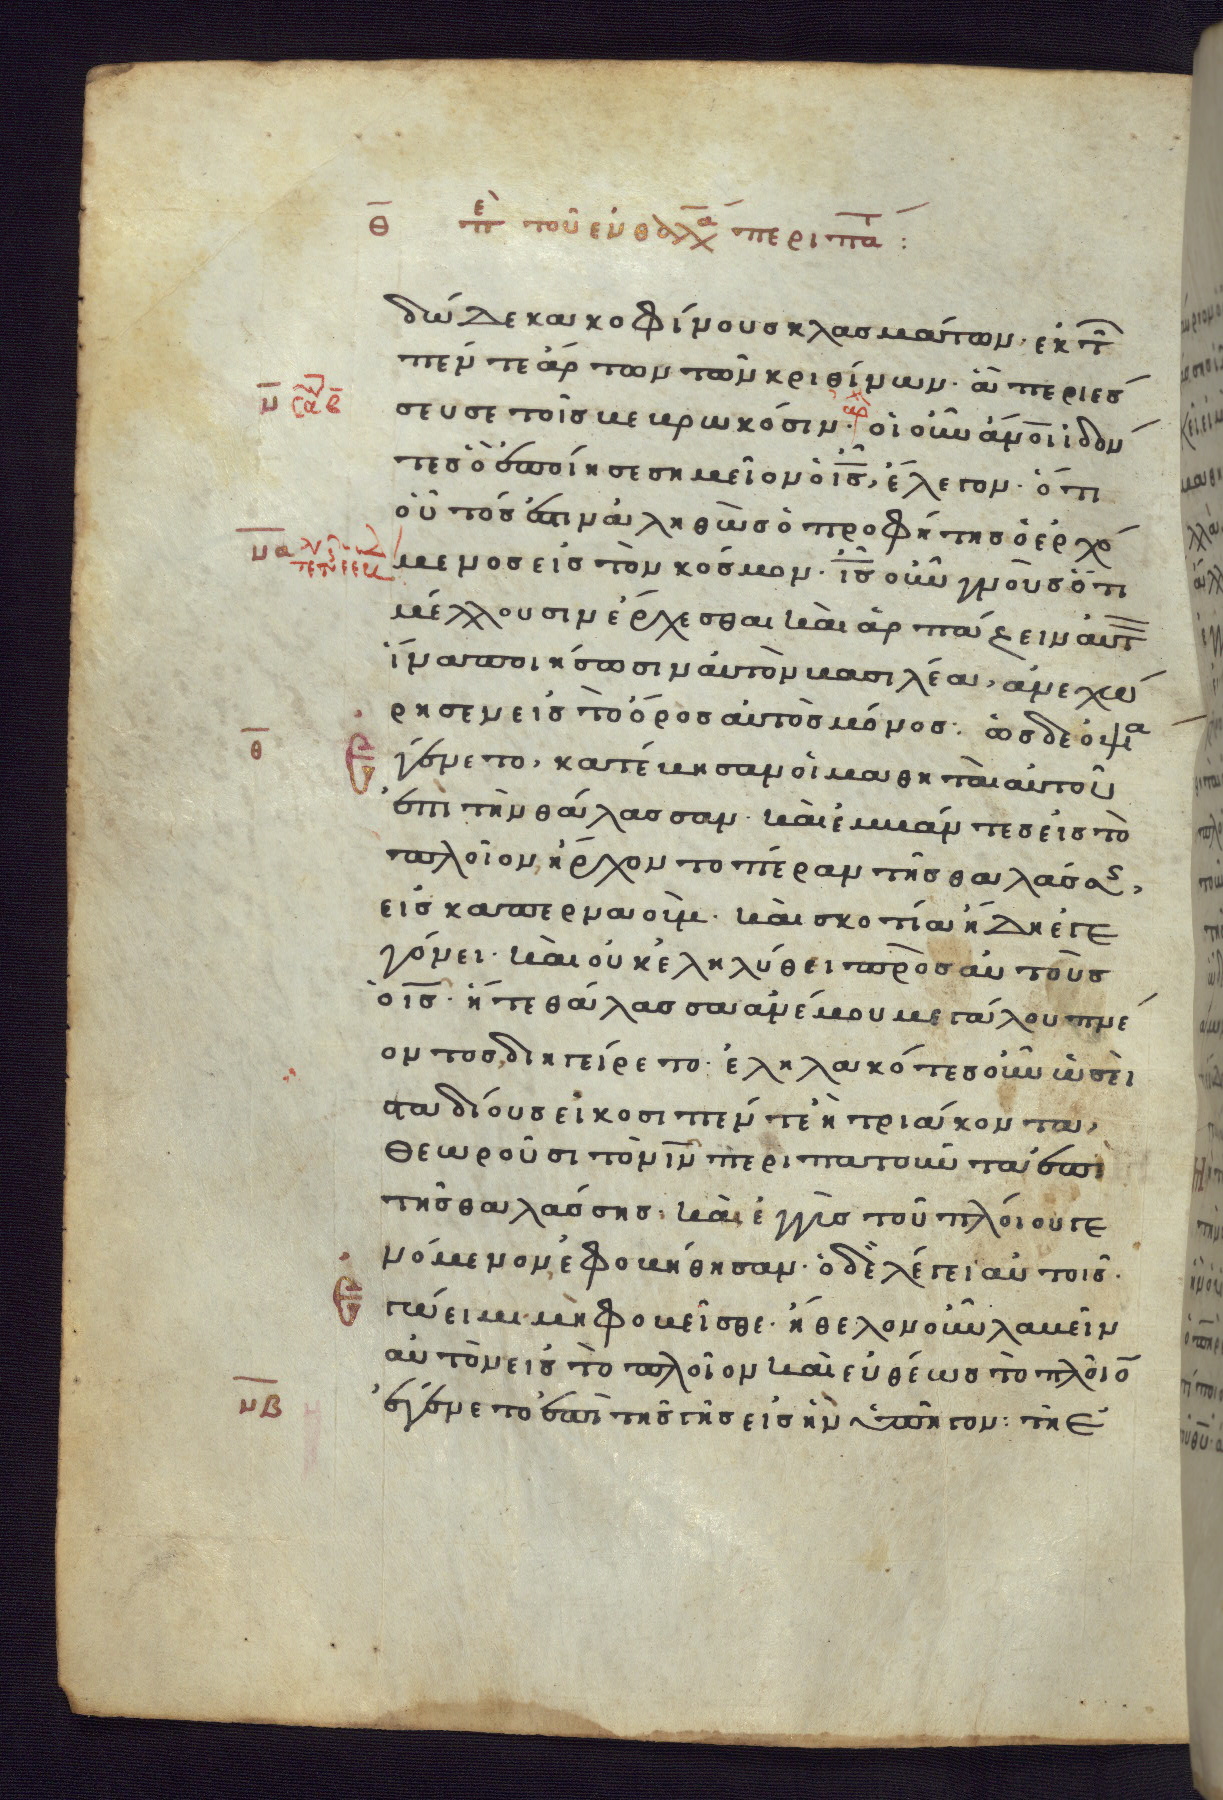 θ περὶ τοῦ ἐν θαλάσσῃ περιπάτου:
δώδεκα κοφίνους κλασμάτων· ἐκ τῶν
πέντε ἄρτων τῶν κριθίνων· ἃ περιέσ
μ σευσε τοῖς βεβρωκόσιν· οἱ οὖν ἄνοι ἰδόν
τες ὃ ἐποίησε σημεῖον ὁ ις, ἔλεγον· ὅτι
οὗτός ἐστιν ἀληθῶς ὁ προφήτης ὁ ἐρχό
μα μενος εἰς τὸν κόσμον· ις οὖν γνοὺς ὅτι
μέλλουσιν ἔρχεσθαι καὶ ἁρπάζειν αὐτὸν
ἵνα ποιήσωσιν αὐτὸν βασιλέα, ἀνεχώ
ρησεν εἰς τὸ ὄρος αὐτὸς μόνος· ὡς δὲ ὀψία
θ ἐγένετο, κατέβησαν οἱ μαθηταὶ αὐτοῦ
ἐπὶ τὴν θάλασσαν· καὶ ἐμβάντες εἰς τὸ
πλοῖον, ἤρχοντο πέραν τῆς θαλάσσης,
εἰς καπερναούμ· καὶ σκοτία ἤδη ἐγε
γόνει· καὶ οὐκ ἐληλύθει πρὸς αὐτοὺς
ὁ ις· ἥ τε θάλασσα ἀνέμου μεγάλου πνέ
οντος διηγείρετο· ἐληλακότες οὖν ὡσεὶ
σταδίους εἰκοσιπέντε ἢ τριάκοντα,
θεωροῦσι τὸν ιν περιπατοῦντα ἐπὶ
τῆς θαλάσσης· καὶ ἐγγὺς τοῦ πλοίου γε
νόμενον, ἐφοβήθησαν· ὁ δὲ λέγει αὐτοῖς·
ἐγώ εἰμι μὴ φοβεῖσθε· ἤθελον οὖν λαβεῖν
αὐτὸν εἰς τὸ πλοῖον καὶ εὐθέως τὸ πλοῖον
μβ ἐγένετο ἐπὶ τῆς γῆς εἰς ἣν ὑπῆγον: τῇ ἐ